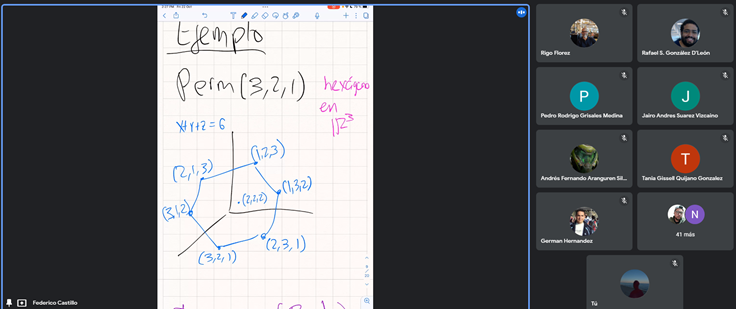 Ejemplo
Perm(3,2,1)
hexágono
en
ℝ³
x+y+z=6
(1,2,3)
(2,1,3)
(1,3,2)
(2,2,2)
(3,1,2)
(2,3,1)
(3,2,1)
Federico Castillo
Rigo Florez
Rafael S. González D'León
P
Pedro Rodrigo Grisales Medina
J
Jairo Andres Suarez Vizcaino
Andrés Fernando Aranguren Sil...
T
Tania Gissell Quijano Gonzalez
German Hernandez
N
41 más
Tú